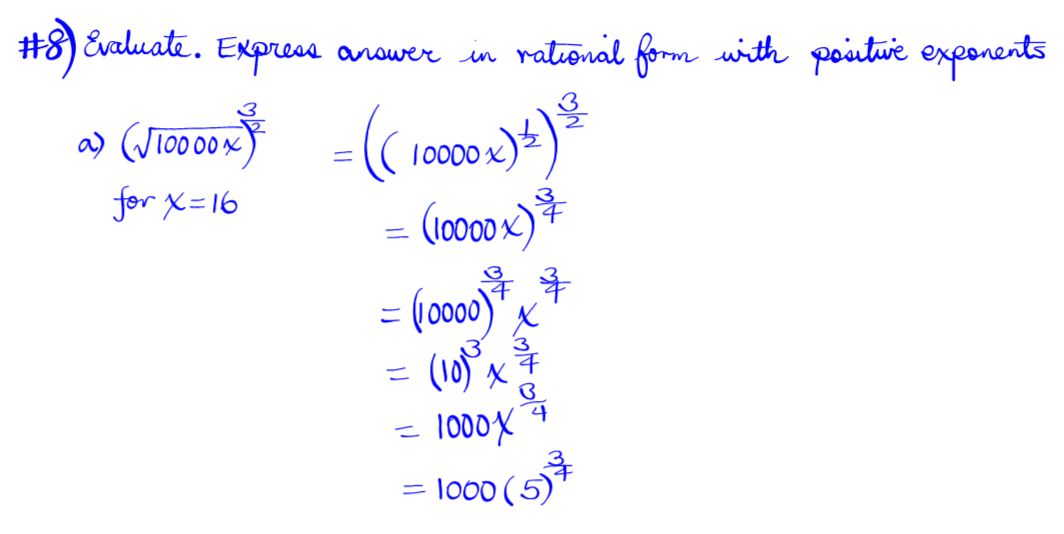 #8) Evaluate. Express answer in rational form with positive exponents
a) (√10000x)^(3/2) = ((10000x)^(1/2))^(3/2)
for x=16
= (10000x)^(3/4)
= (10000)^(3/4) x^(3/4)
= (10)^3 x^(3/4)
= 1000x^(3/4)
= 1000(5)^(3/4)